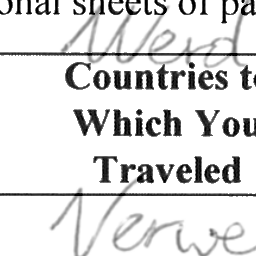 onal sheets of pa
Werd
Countries t
Which You
Traveled
Verwe